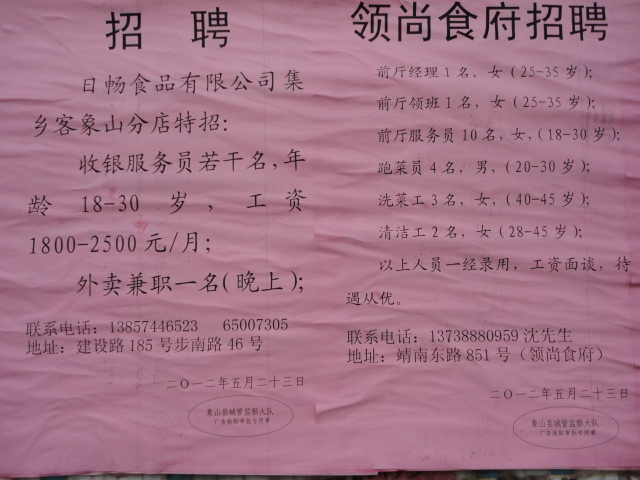 招 聘
日畅食品有限公司集
乡客象山分店特招:
收银服务员若干名,年
龄 18-30 岁,工资
1800-2500 元/月;
外卖兼职一名(晚上);
联系电话: 13857446523 65007305
地址: 建设路 185 号步南路 46 号
二〇一二年五月二十三日
象山县城管监察大队
广告张贴审批专用章
领尚食府招聘
前厅经理 1 名, 女 (25-35 岁);
前厅领班 1 名, 女 (25-35 岁);
前厅服务员 10 名, 女, (18-30 岁);
跑菜员 4 名, 男, (20-30 岁);
洗菜工 3 名, 女, (40-45 岁);
清洁工 2 名, 女 (28-45 岁);
以上人员一经录用, 工资面谈, 待
遇从优。
联系电话: 13738880959 沈先生
地址: 靖南东路 851 号 (领尚食府)
二〇一二年五月二十三日
象山县城管监察大队
广告张贴审批专用章